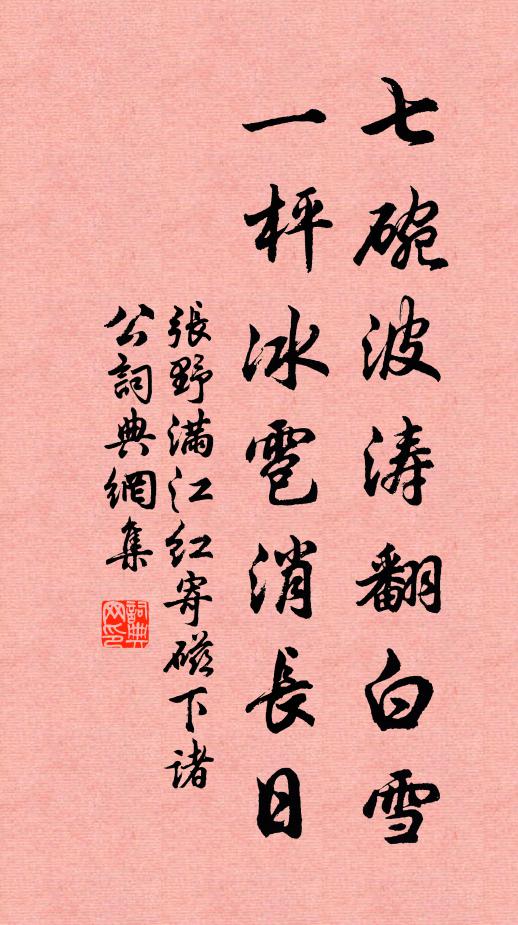 七碗波涛翻白雪
一枰冰雹消長日
張野满江红寄磁下诸
公詞典網集
詞典网印